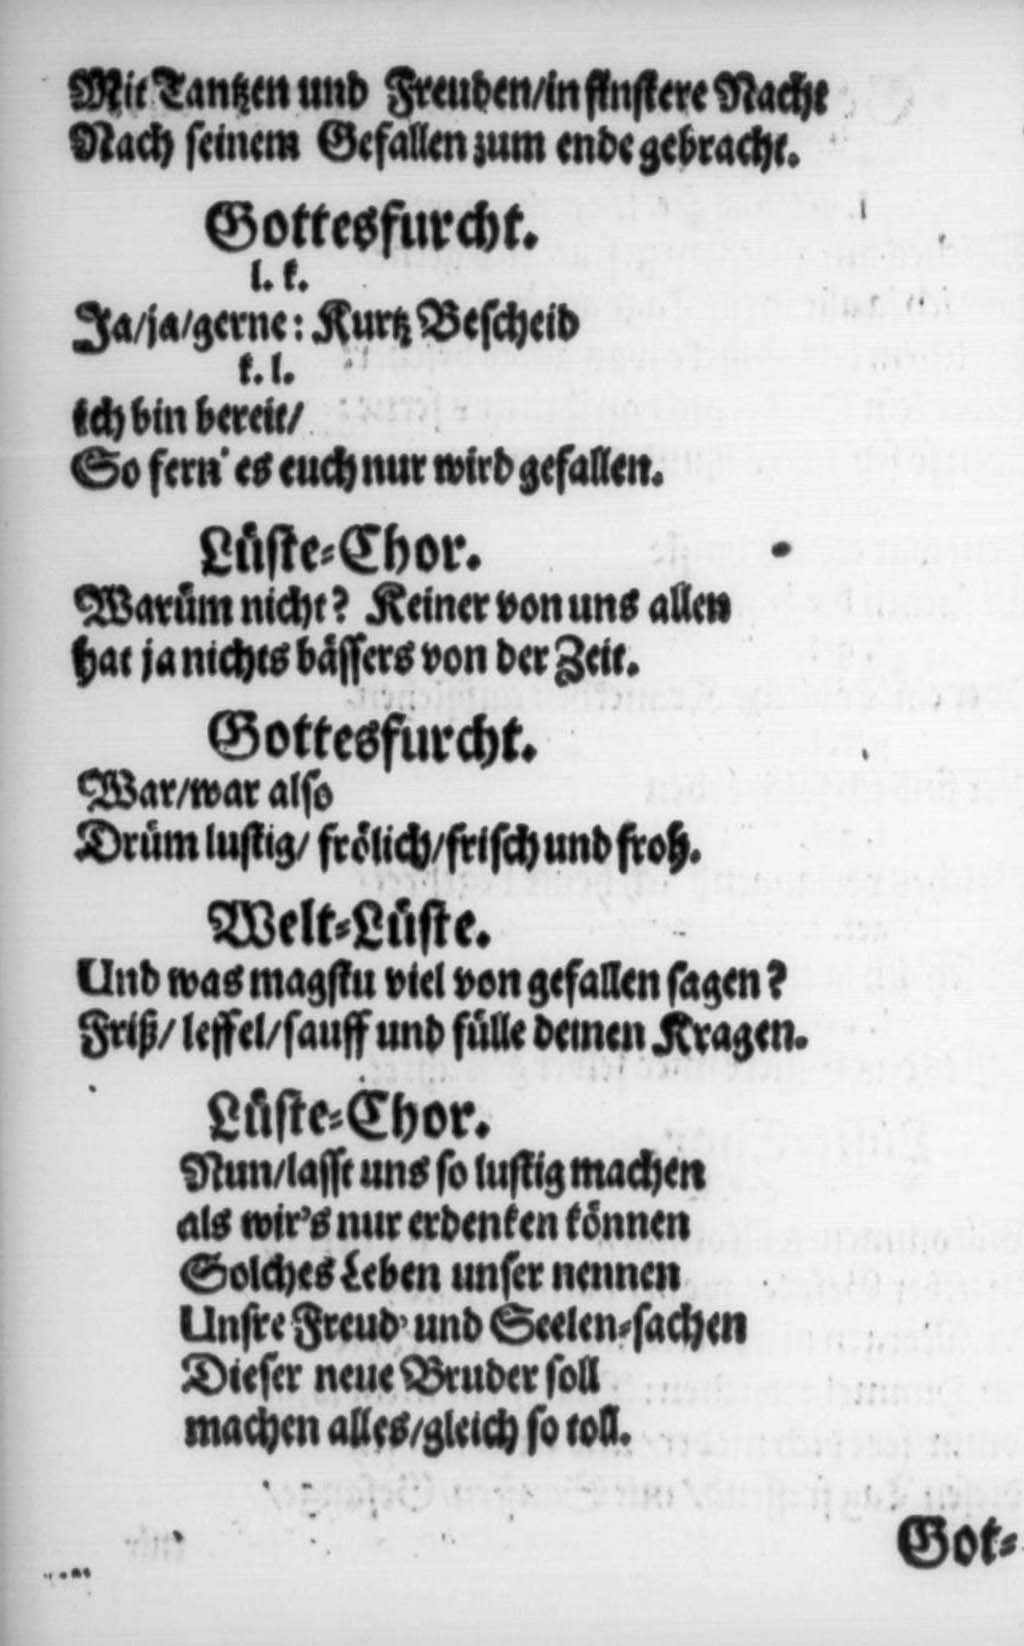 Mit Tantzen und Freuden/in finstere Nacht
Nach seinem Gefallen zum ende gebracht.
Gottesfurcht.
l. k.
Ja/ja/gerne: Kurtz Bescheid
k. l.
ich bin bereit/
So fern' es euch nur wird gefallen.
Lüste-Chor.
Warüm nicht? Keiner von uns allen
hat ja nichts bässers von der Zeit.
Gottesfurcht.
War/war also
Drüm lustig/ frölich/frisch und froh.
Welt-Lüste.
Und was magstu viel von gefallen sagen?
Friß/ leffel/sauff und fülle deinen Kragen.
Lüste-Chor.
Nun/lasst uns so lustig machen
als wir's nur erdenken können
Solches Leben unser nennen
Unsre Freud' und Seelen-sachen
Dieser neue Bruder soll
machen alles/gleich so toll.
Got-